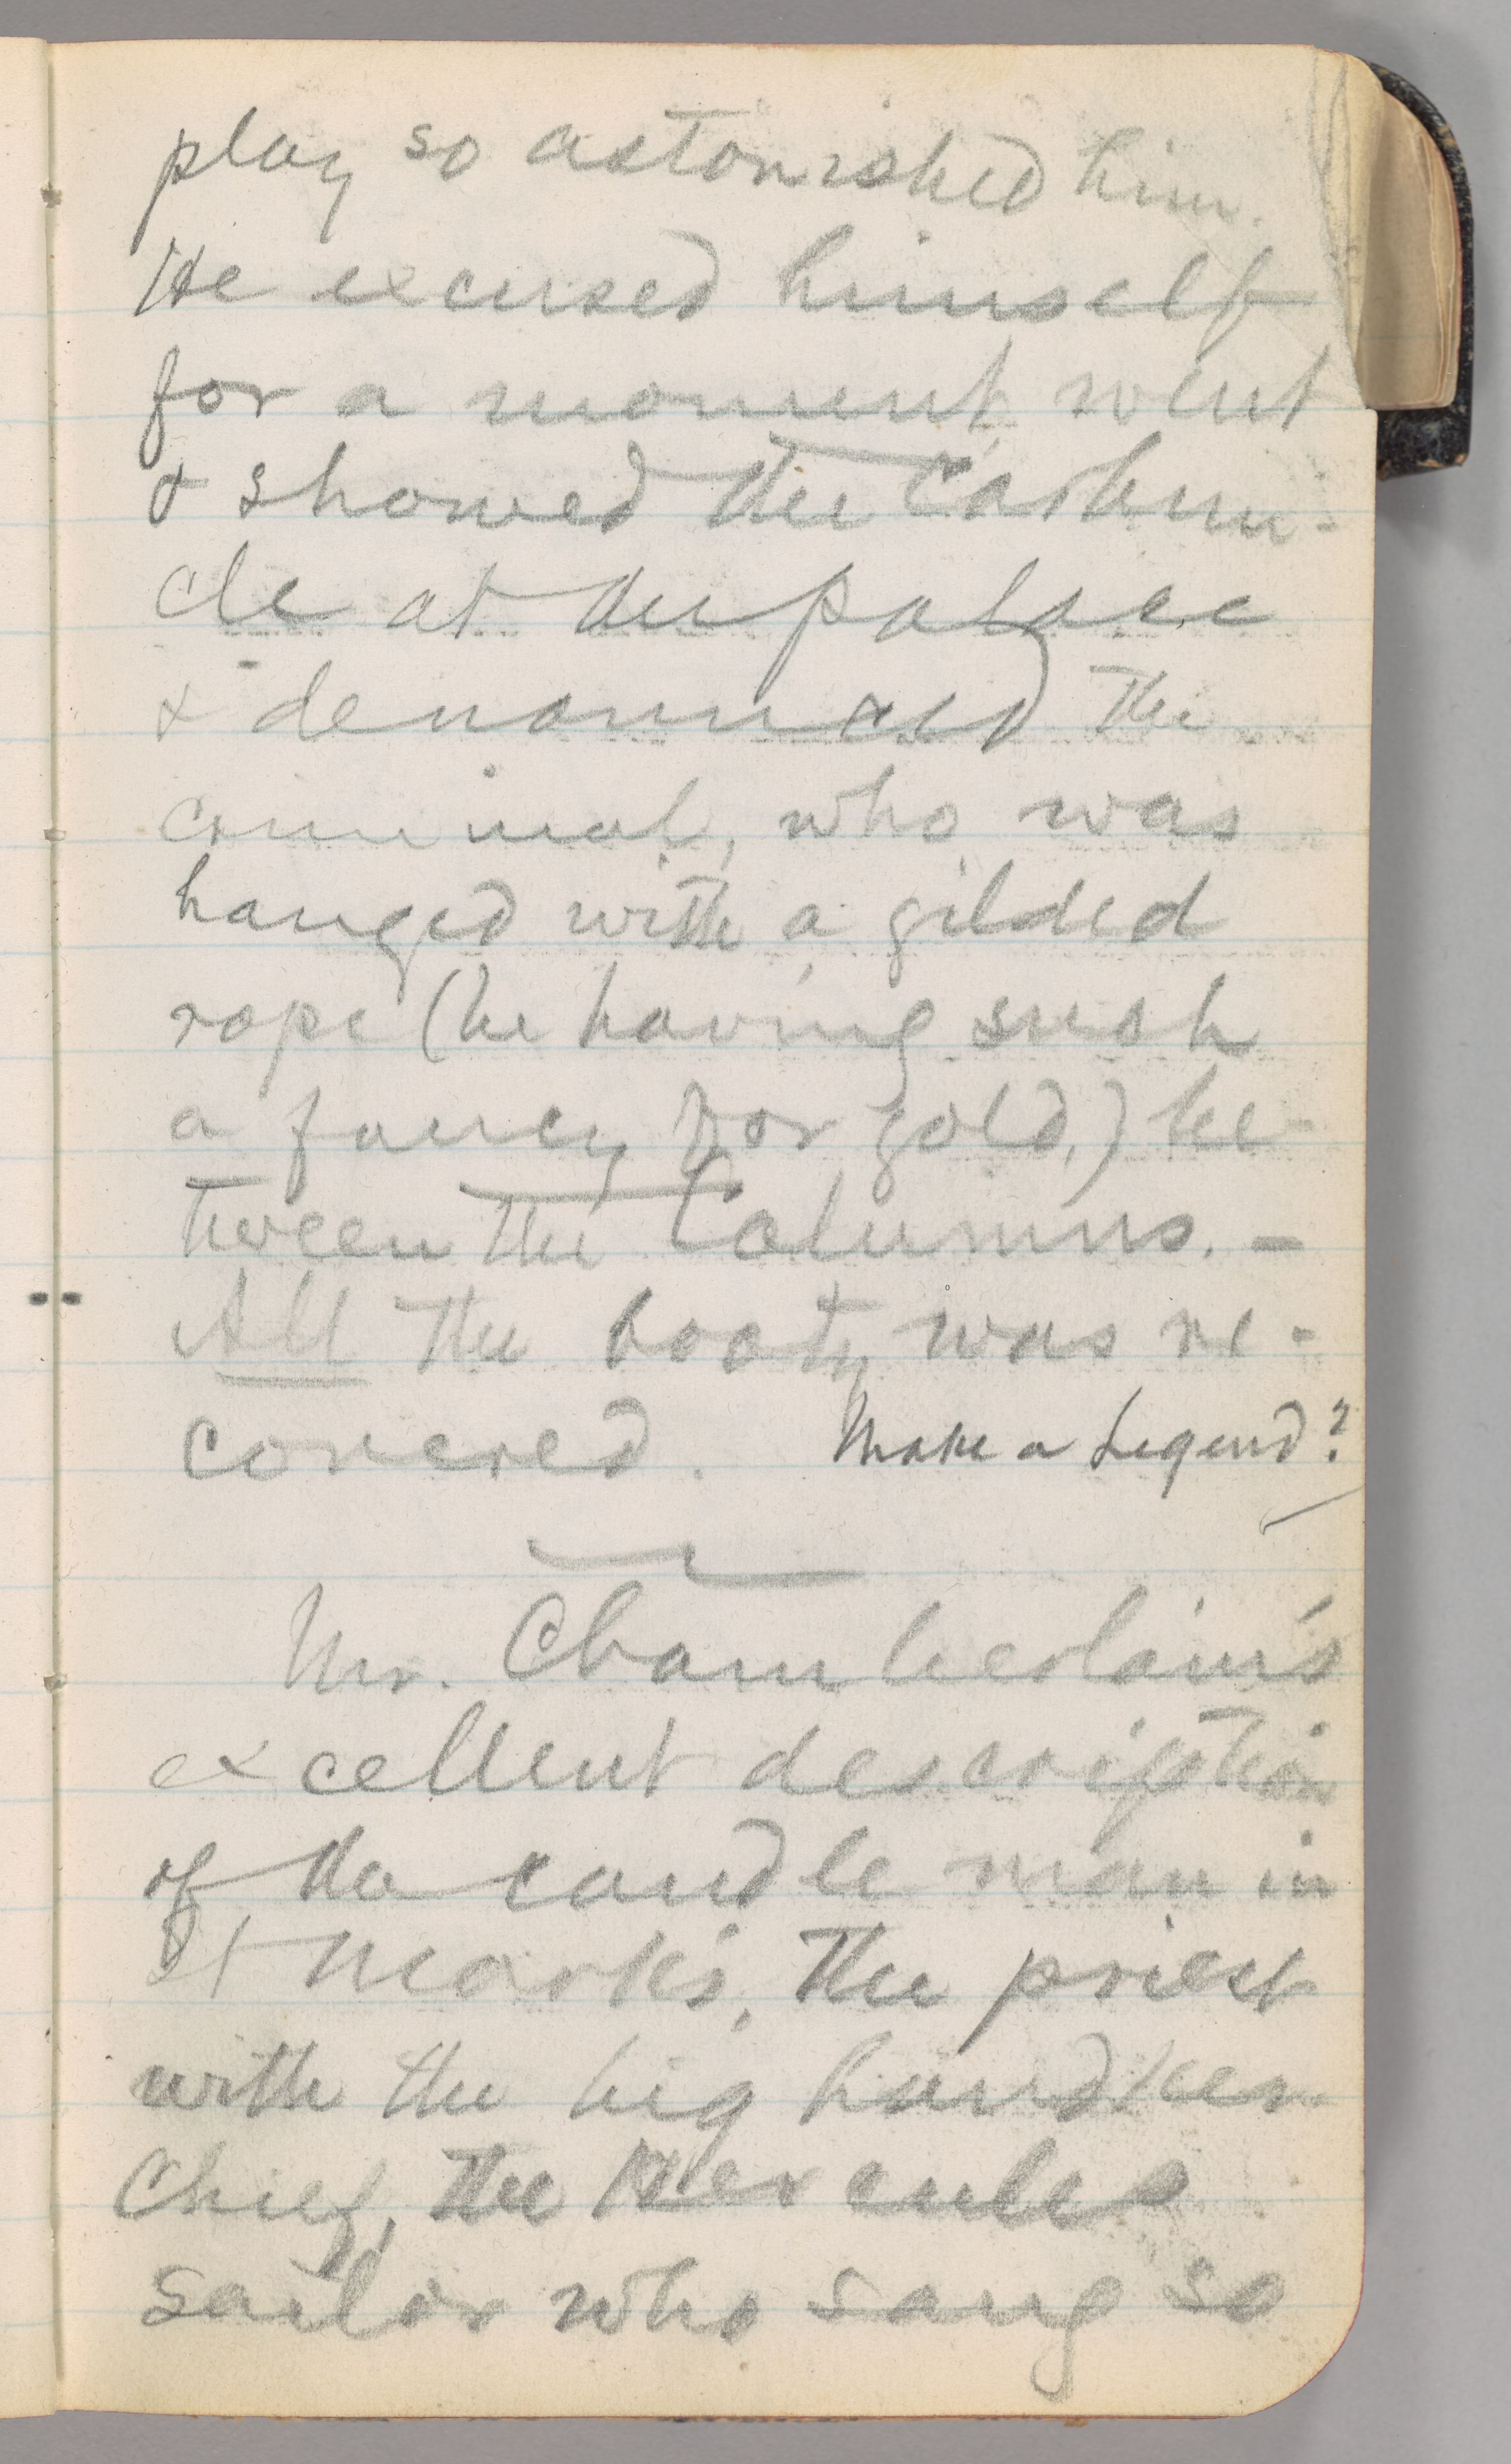 play so astonished him.
He excused himself
for a moment, went
& showed the Carbun-
cle at the palace
& denounced the
criminal, who was
hanged with a gilded
rope (he having such
a fancy for gold,) be-
tween the Columns. —
All the booty was re-
covered. Make a Legend?
Mr. Chamberlain's
excellent description
of the candle man in
St Mark's, the priest
with the big handker-
chief, the Hercules
sailor who sang so